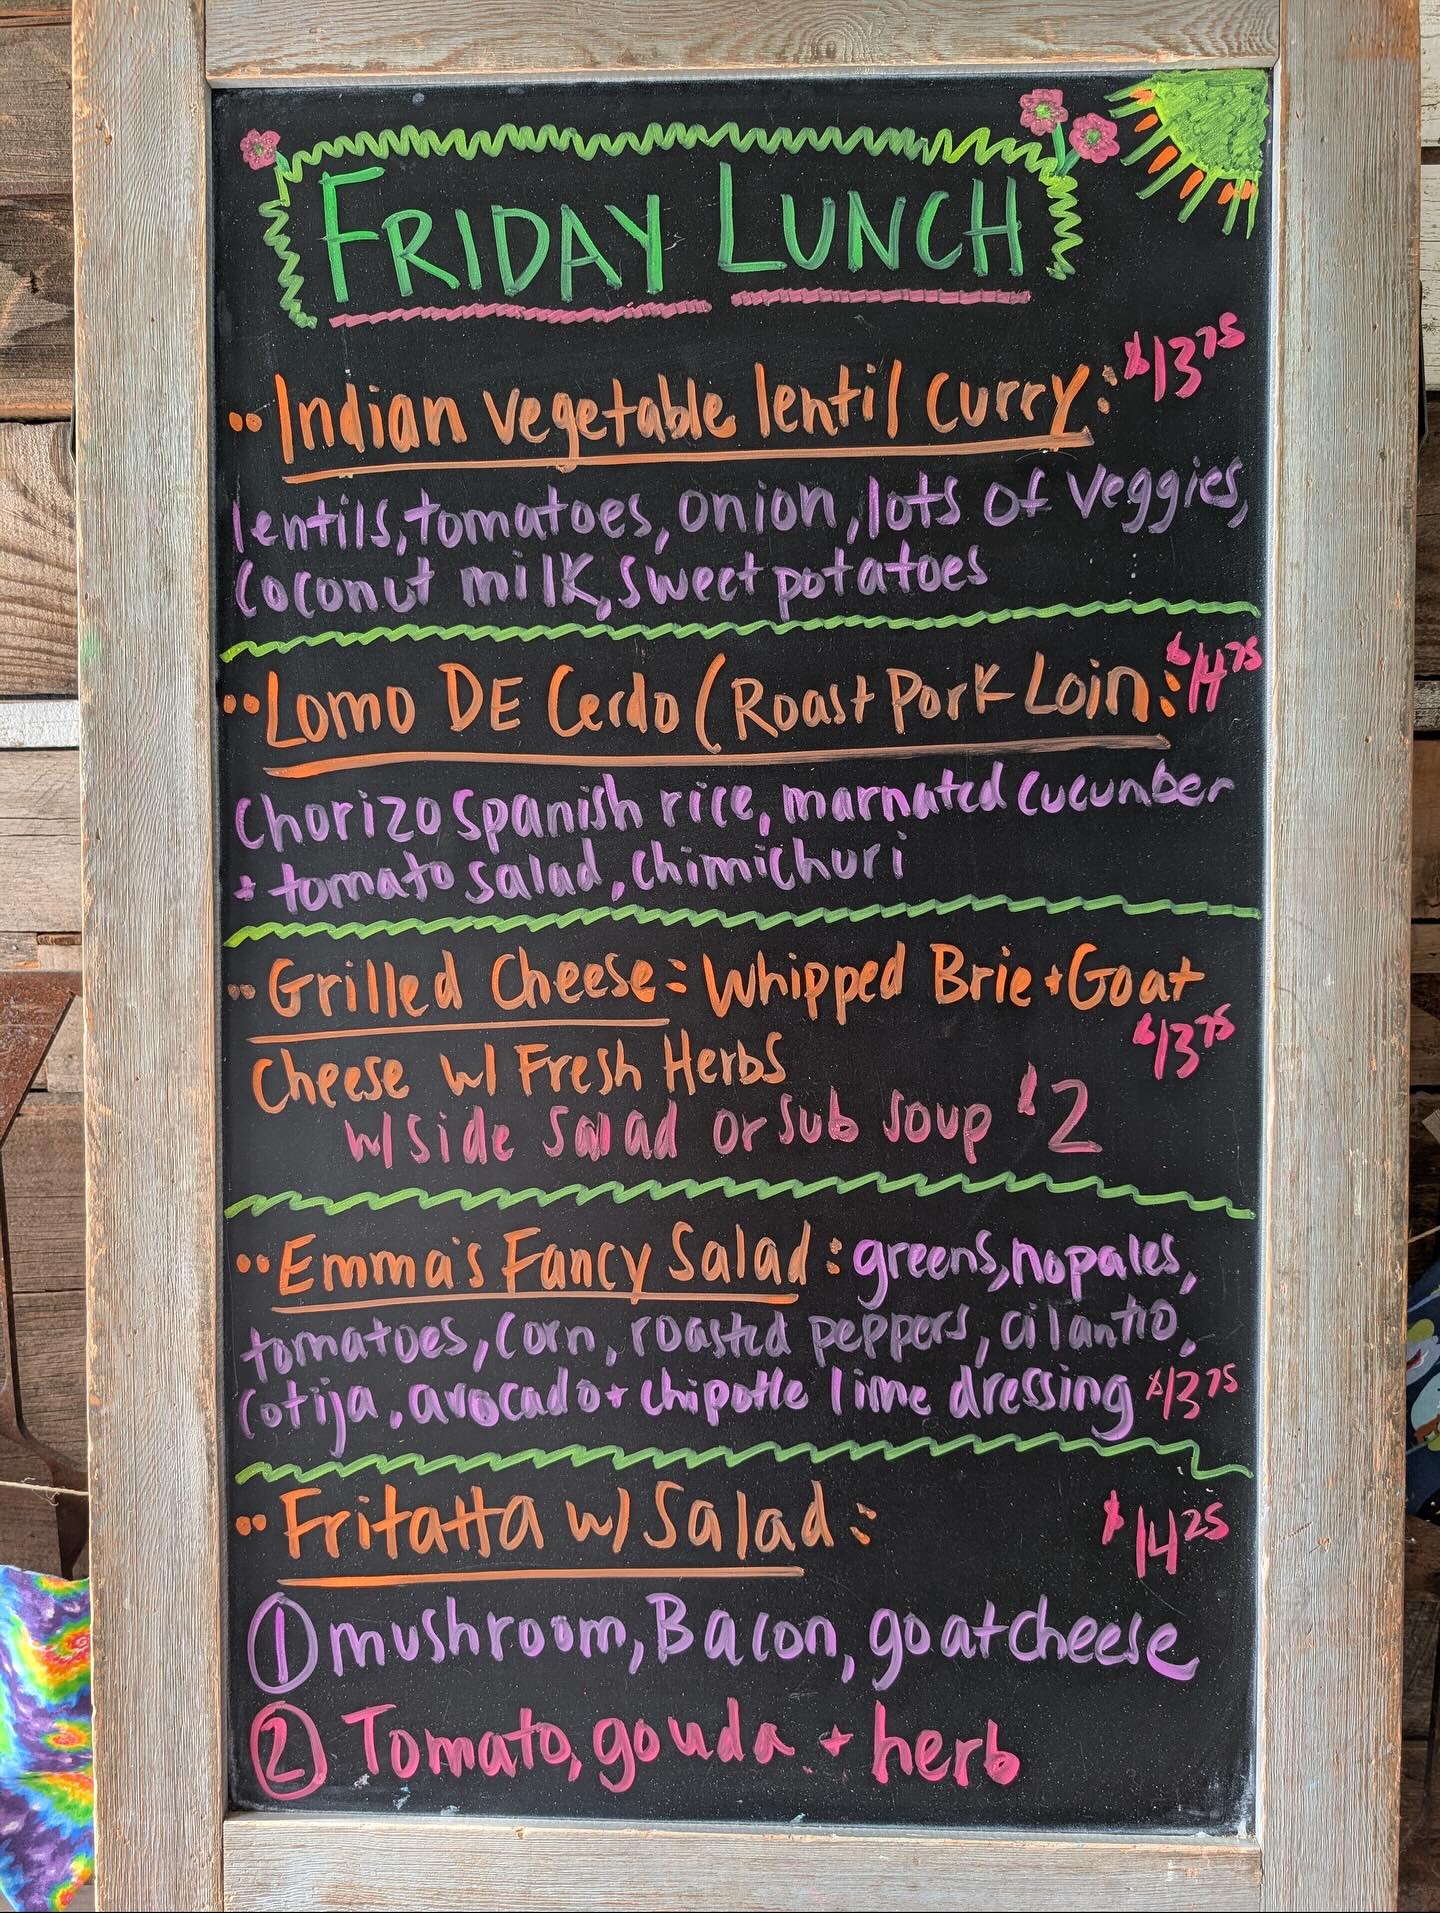 FRIDAY LUNCH
Indian vegetable lentil curry: $13.75
lentils, tomatoes, onion, lots of veggies,
coconut milk, sweet potatoes
LOMO DE Cerdo (Roast Pork Loin: $14.75
Chorizo spanish rice, marnated cucumber
+ tomato salad, chimichuri
Grilled Cheese: Whipped Brie + Goat
Cheese w/ Fresh Herbs $13.75
w/side salad or sub soup $2
Emma's Fancy Salad: greens, nopales,
tomatoes, corn, roasted peppers, cilantro,
cotija, avocado + chipotle lime dressing $13.75
Fritatta w/ Salad: $14.25
① mushroom, Bacon, goat cheese
② Tomato, gouda + herb